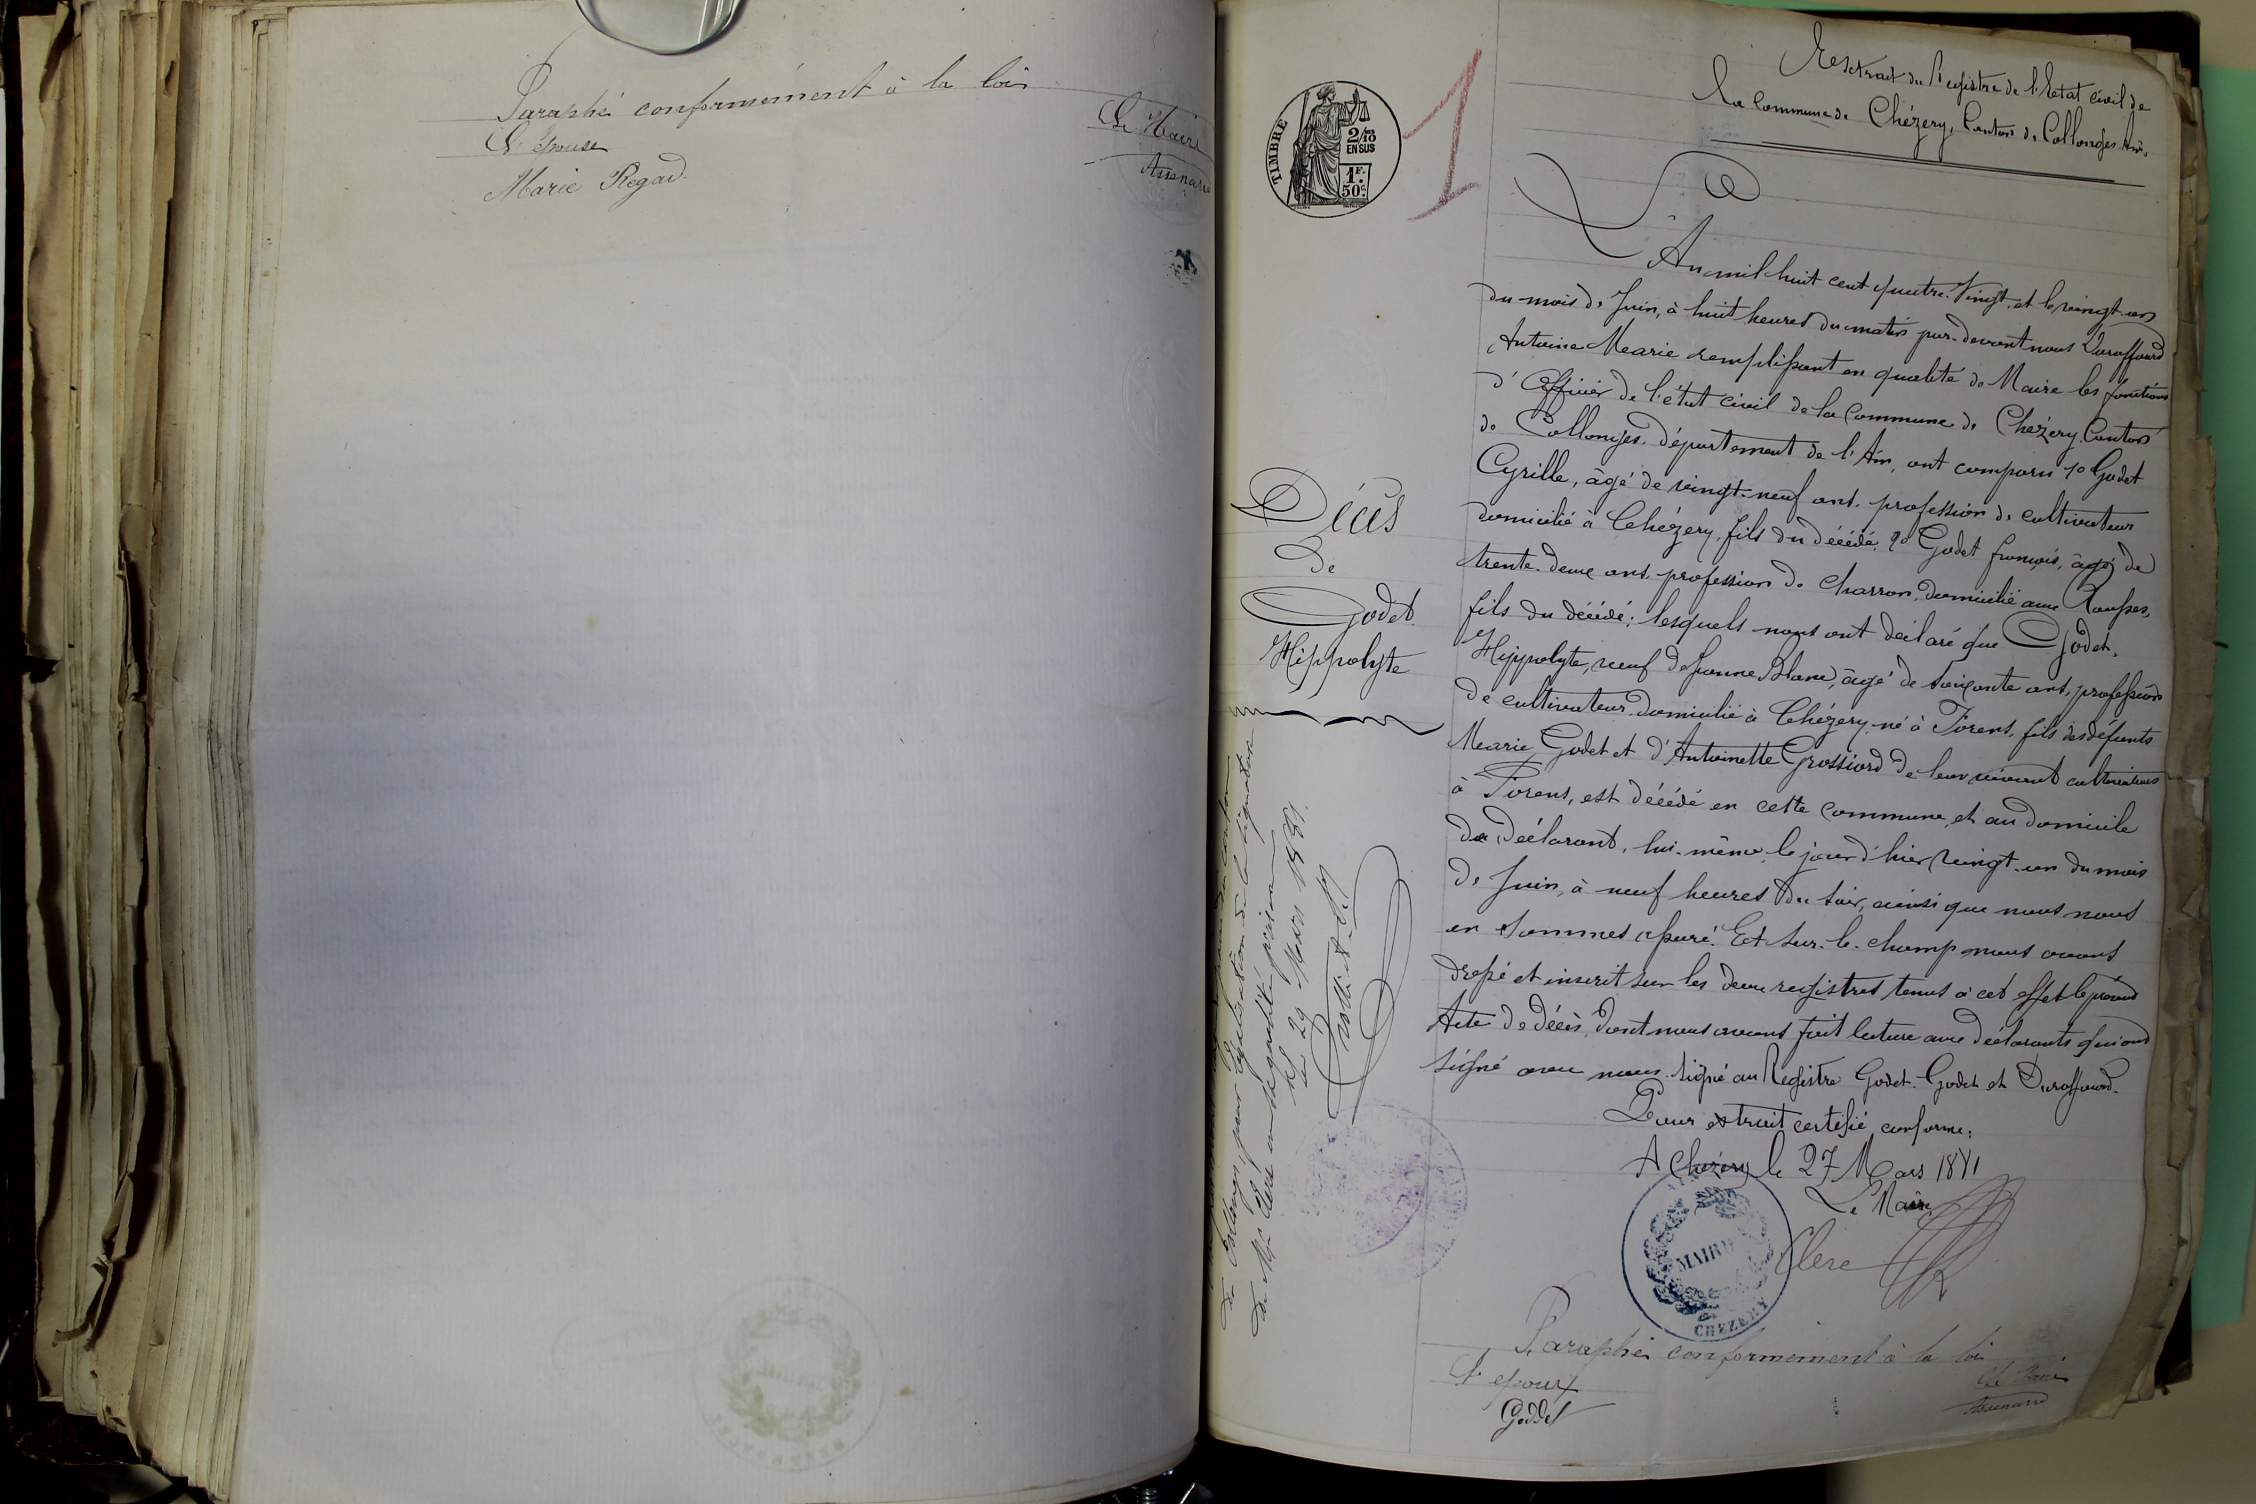 Paraphé conformément à la loi
L'épouse
Le Maire
Marie Regad
TIMBRE
2/10
EN SUS
1F.
50c.
1
Extrait du Registre de l'Etat civil de
la commune de Chézery, Canton de Collonges Ain.
L'
An mil huit cent quatre-vingt et le vingt-un
du mois de Juin, à huit heures du matin par-devant nous Duraffourd
Antoine Marie remplissant en qualité de Maire les fonctions
d'Officier de l'état civil de la commune de Chézery, Canton
de Collonges. département de l'Ain, ont comparu 1o Godet
Cyrille, âgé de vingt-neuf ans. profession de cultivateur
domicilié à Chézery, fils du décédé. 2o Godet françois, âgé de
trente-deux ans, profession de charron, domicilié aux Rousses,
fils du décédé: lesquels nous ont déclaré que Godet,
Hippolyte, veuf de Jeanne Blanc, âgé de soixante ans, profession
de cultivateur domicilié à Chézery, né à Forens, fils des défunts
Marie Godet et d'Antoinette Grossiord de leur vivant cultivateurs
à Forens, est décédé en cette commune, et au domicile
du Déclarant, lui-même le jour d'hier vingt-un du mois
de Juin, à neuf heures du soir, ainsi que nous nous
en sommes assuré. Et sur-le-champ nous avons
dressé et inscrit sur les deux registres tenus à cet effet le présent
Acte de décès, dont nous avons fait lecture aux déclarants qui ont
signé avec nous. signé au Registre Godet. Godet et Duraffourd.
Pour extrait certifié conforme:
A Chézery le 27 Mars 1881
Le Maire
Clerc
MAIRIE
CHEZERY
Décès
de
Godet
Hippolyte
de Collonges, pour légalisation de la signature
de Mr Clerc en sa qualité
le 29 Mars 1881.
Paraphé conformément à la loi
L'époux
Le Maire
Godet